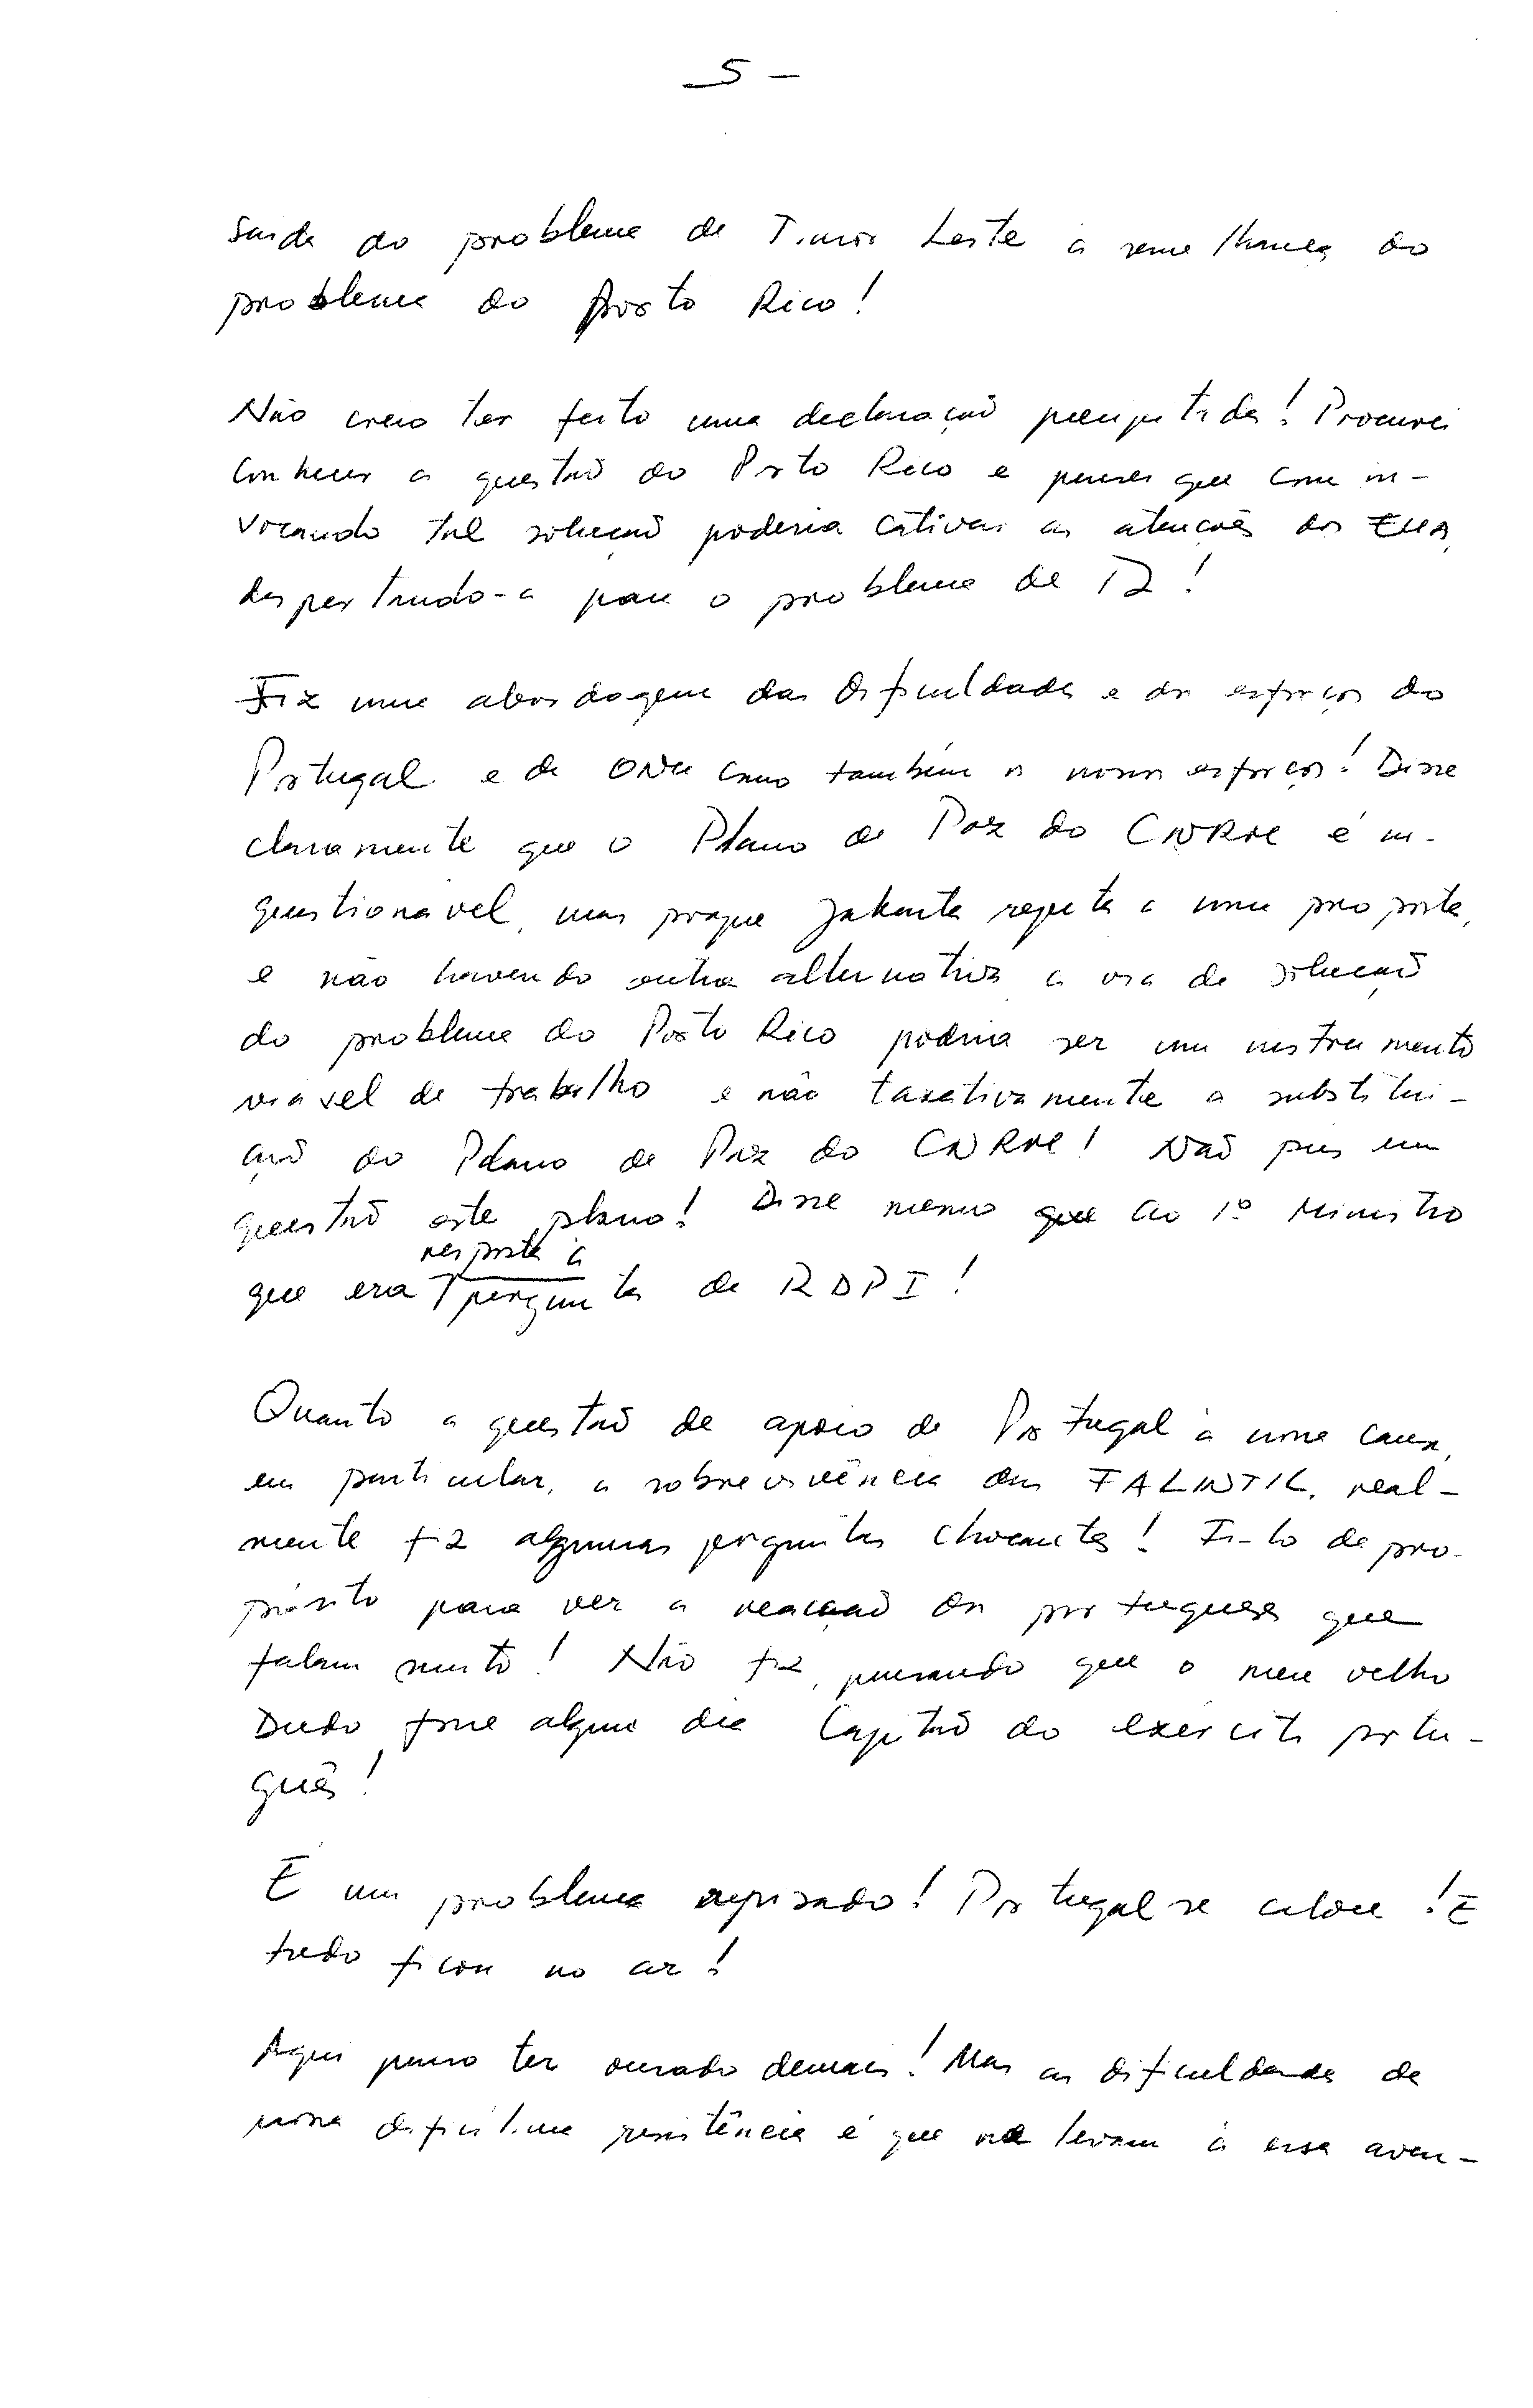 5 -
saida do problema de Timor Leste à semelhança do
problema do Porto Rico!
Não creio ter feito uma declaração precipitada! Procurei
conhecer a questão do Porto Rico e pensei que com in-
vocando tal solução poderia cativar as atenções dos EUA,
despertando-a para o problema de
Fiz uma abordagem das dificuldades e dos esforços do
Portugal e da ONU como também os nossos esforços! Disse
claramente que o Plano de Paz do CNRM é in-
questionável, mas porque Jakarta rejeita a uma proposta,
e não havendo outra alternativa a via de solução
do problema do Porto Rico poderia ser um instrumento
viavel de trabalho e não taxativamente a substitui-
ção do Plano de Paz do CNRM! Não pus em
questão este plano! Disse mesmo que ao 1º Ministro
resposta à
que era pergunta da RDPI!
Quanto a questão de apoio de Portugal à nossa causa,
em particular, a sobrevivência das FALINTIL, real-
mente fiz algumas perguntas chocantes! Fi-lo de pro-
pósito para ver a reacção dos portugueses que
falam muito! Não fiz, pensando que o meu velho
Dudo fosse algum dia Capitão do exército portu-
guês!
É um problema repisado! Portugal se calou! E
tudo ficou no ar!
Aqui penso ter ousado demais! Mas as dificuldades da
nossa dificílima resistência é que me levam à essa aven-